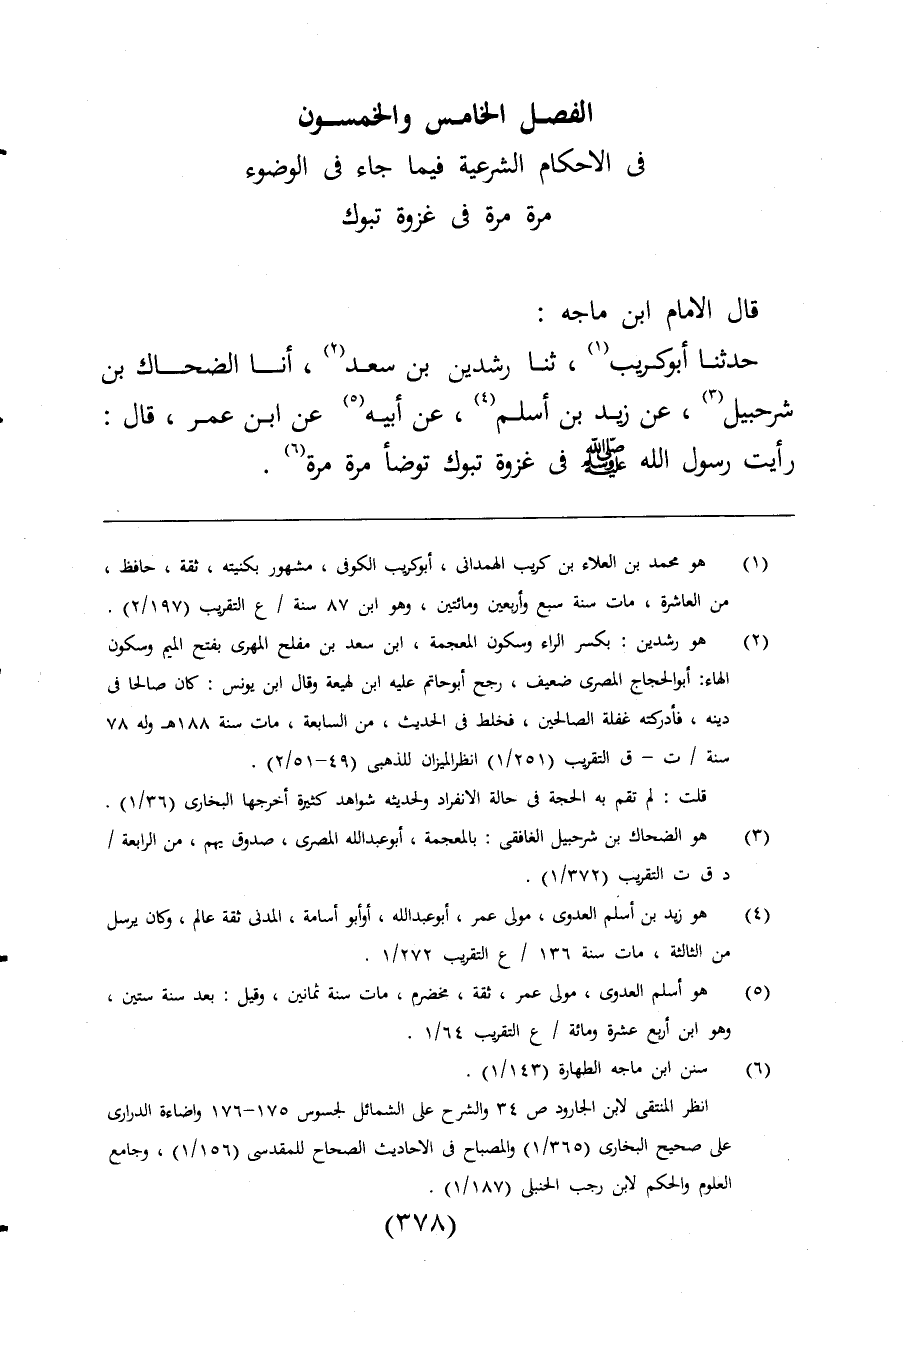 الفصل الخامس والخمسون
فى الاحكام الشرعية فيما جاء فى الوضوء
مرة مرة فى غزوة تبوك
قال الامام ابن ماجه :
حدثنا أبوكريب(١) ، ثنا رشدين بن سعد(٢) ، أنا الضحاك بن
شرحبيل(٣) ، عن زيد بن أسلم(٤) ، عن أبيه(٥) عن ابن عمر ، قال :
رأيت رسول الله ﷺ فى غزوة تبوك توضأ مرة مرة(٦) .
(١) هو محمد بن العلاء بن كريب الهمدانى ، أبوكريب الكوفى ، مشهور بكنيته ، ثقة ، حافظ ،
من العاشرة ، مات سنة سبع وأربعين ومائتين ، وهو ابن ٨٧ سنة / ع التقريب (٢/١٩٧) .
(٢) هو رشدين : بكسر الراء وسكون المعجمة ، ابن سعد بن مفلح المهرى بفتح الميم وسكون
الهاء: أبوالحجاج المصرى ضعيف ، رجح أبوحاتم عليه ابن لهيعة وقال ابن يونس : كان صالحا فى
دينه ، فأدركته غفلة الصالحين ، فخلط فى الحديث ، من السابعة ، مات سنة ١٨٨هـ وله ٧٨
سنة / ت – ق التقريب (١/٢٥١) انظرالميزان للذهبى (٤٩–٢/٥١) .
قلت : لم تقم به الحجة فى حالة الانفراد ولحديثه شواهد كثيرة أخرجها البخارى (١/٣٦) .
(٣) هو الضحاك بن شرحبيل الغافقى : بالمعجمة ، أبوعبدالله المصرى ، صدوق يهم ، من الرابعة /
د ق ت التقريب (١/٣٧٢) .
(٤) هو زيد بن أسلم العدوى ، مولى عمر ، أبوعبدالله ، أوأبو أسامة ، المدنى ثقة عالم ، وكان يرسل
من الثالثة ، مات سنة ١٣٦ / ع التقريب ١/٢٧٢ .
(٥) هو أسلم العدوى ، مولى عمر ، ثقة ، مخضرم ، مات سنة ثمانين ، وقيل : بعد سنة ستين ،
وهو ابن أربع عشرة ومائة / ع التقريب ١/٦٤ .
(٦) سنن ابن ماجه الطهارة (١/١٤٣) .
انظر المنتقى لابن الجارود ص ٣٤ والشرح على الشمائل لجسوس ١٧٥–١٧٦ واضاءة الدرارى
على صحيح البخارى (١/٣٦٥) والمصباح فى الاحاديث الصحاح للمقدسى (١/١٥٦) ، وجامع
العلوم والحكم لابن رجب الحنبلى (١/١٨٧) .
(٣٧٨)